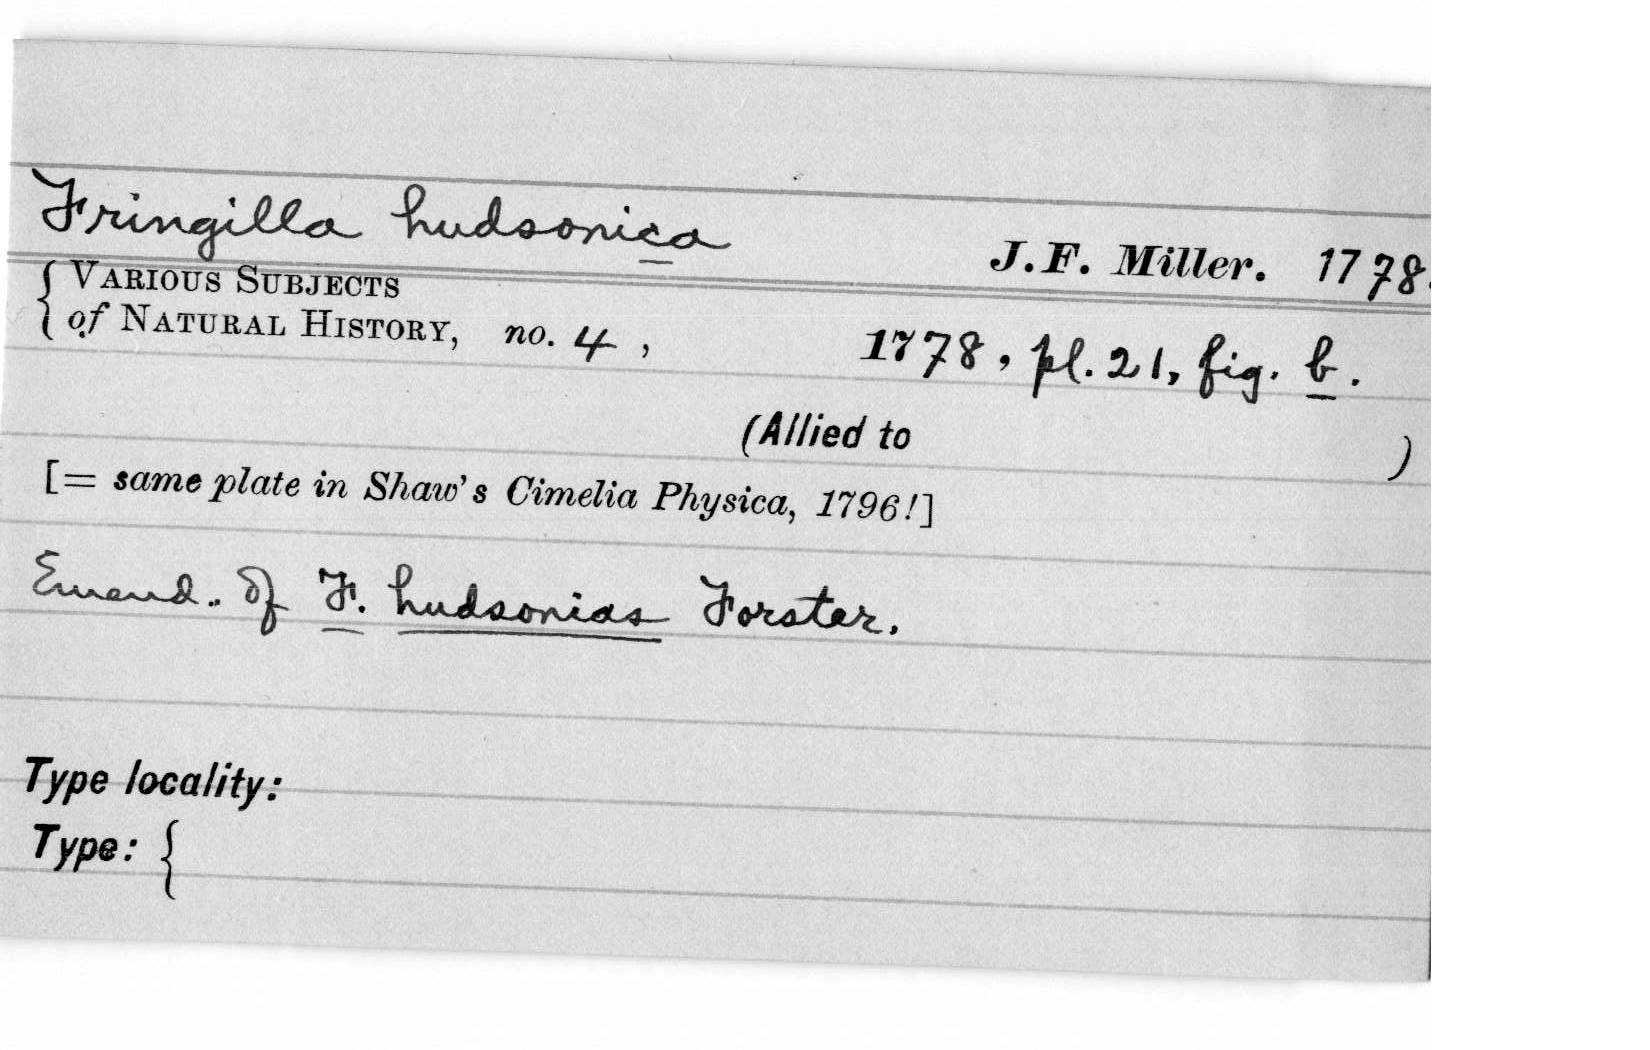 Fringilla hudsonica
J.F. Miller. 1778.
{ VARIOUS SUBJECTS
of NATURAL HISTORY, no. 4, 1778, pl. 21, fig. b.
(Allied to )
[= same plate in Shaw's Cimelia Physica, 1796!]
Emend. of F. hudsonias Forster.
Type locality:
Type: {